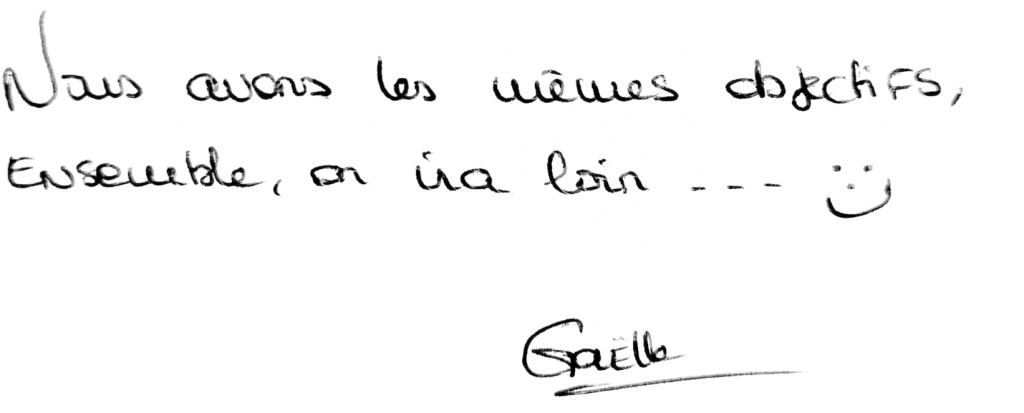 Nous avons les mêmes objectifs,
Ensemble, on ira loin ... :)
Gaëlle